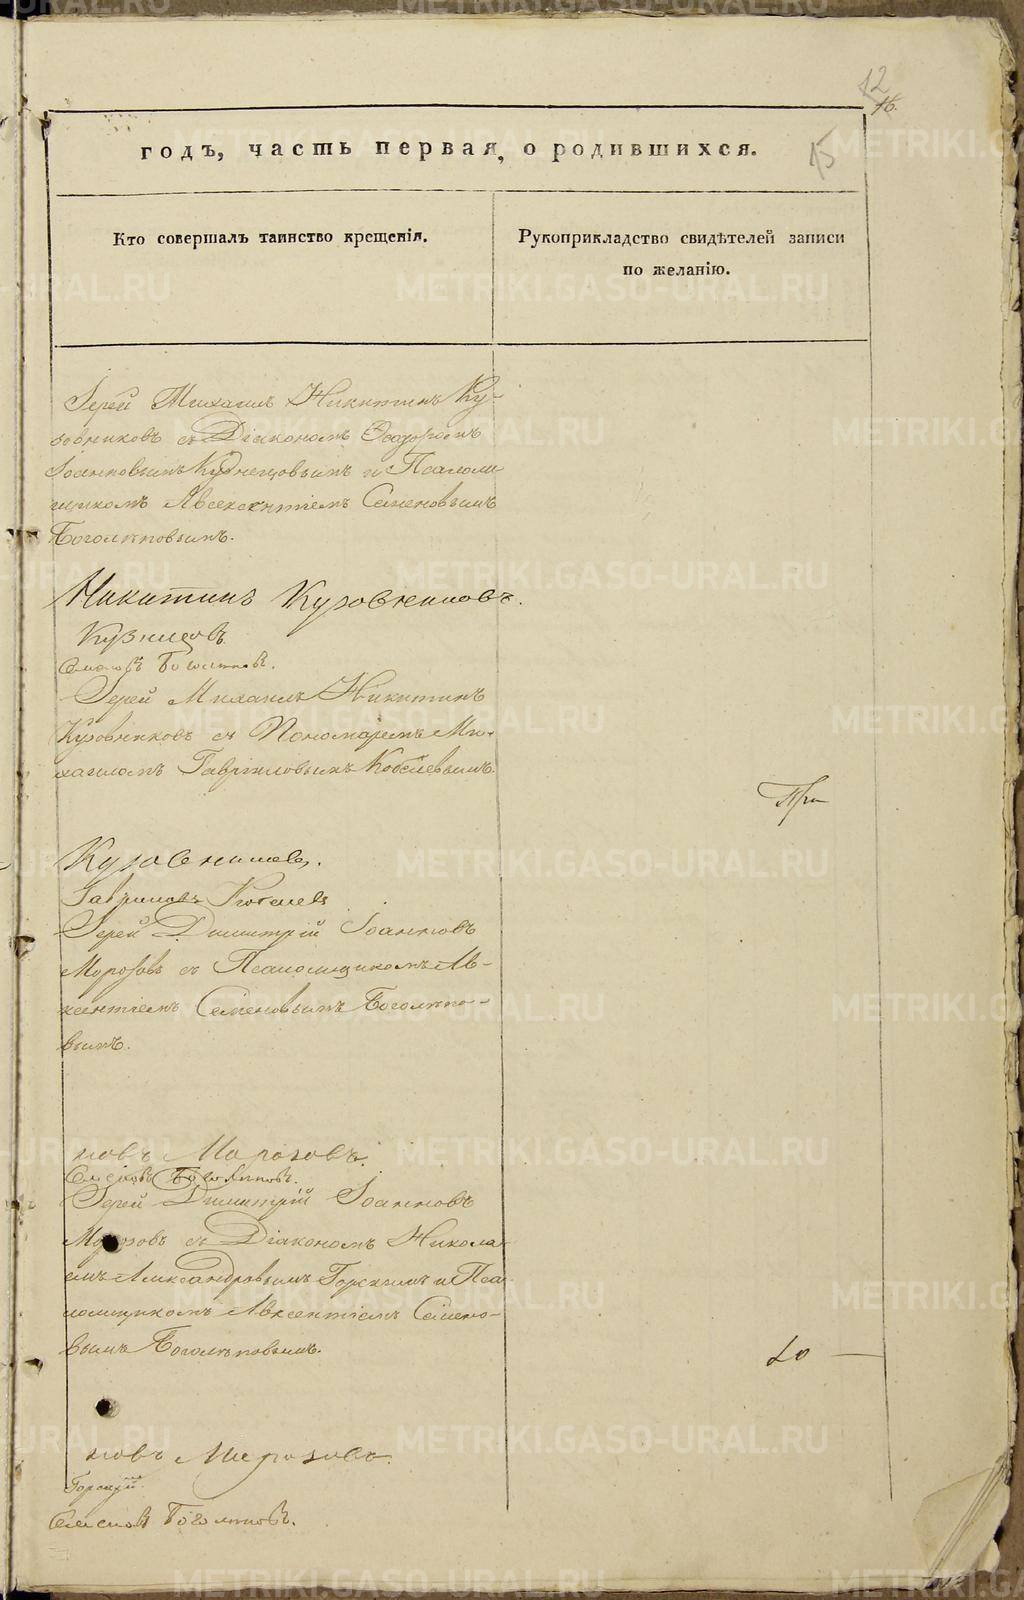 12
16.
15
годъ, часть первая, о родившихся.
Кто совершалъ таинство крещенія.
Рукоприкладство свидѣтелей записи
по желанію.
Іерей Михаилъ Никитинъ Ку-
зовниковъ съ Діакономъ Ѳеодоромъ
Іоанновымъ Кузнецовымъ и Псалом
щикомъ Авксентіемъ Семеновымъ
Боголѣповымъ.
Никитинъ Кузовниковъ.
Кузнецовъ
Семеновъ Боголѣповъ.
Іерей Михаилъ Никитинъ
Кузовниковъ съ Пономаремъ Ми-
хаиломъ Гавріиловымъ Кобелевымъ.
При
Кузовниковъ.
Гавриловъ Кобелевъ
Іерей Димитрій Іоанновъ
Морозовъ съ Псаломщикомъ Ав-
ксентіемъ Семеновымъ Боголѣпо-
вымъ.
новъ Морозовъ.
Семеновъ Боголѣповъ.
Іерей Димитрій Іоанновъ
Морозовъ съ Діакономъ Никола-
емъ Александровымъ Горскимъ и Пса-
ломщикомъ Авксентіемъ Семено-
вымъ Боголѣповымъ.
новъ Морозовъ.
Горскій.
Семеновъ Боголѣповъ.
METRIKI.GASO-URAL.RU